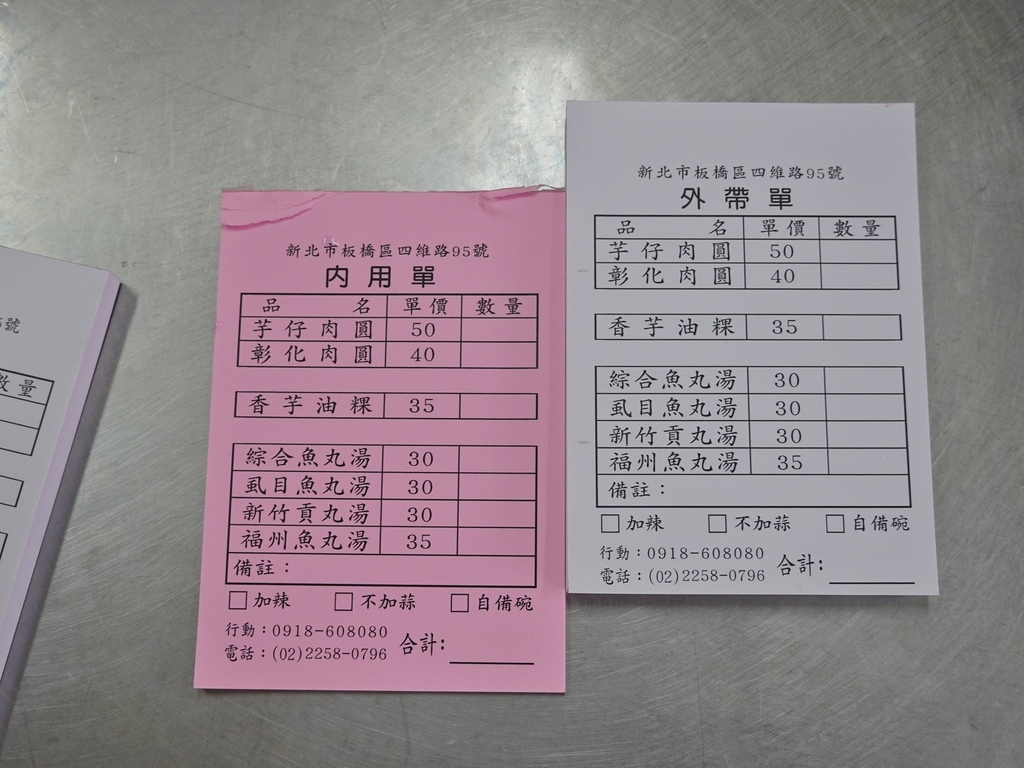 新北市板橋區四維路95號
內用單
品名 單價 數量
芋仔肉圓 50
彰化肉圓 40
香芋油粿 35
綜合魚丸湯 30
虱目魚丸湯 30
新竹貢丸湯 30
福州魚丸湯 35
備註：
□加辣 □不加蒜 □自備碗
行動：0918-608080
電話：(02)2258-0796 合計:
新北市板橋區四維路95號
外帶單
品名 單價 數量
芋仔肉圓 50
彰化肉圓 40
香芋油粿 35
綜合魚丸湯 30
虱目魚丸湯 30
新竹貢丸湯 30
福州魚丸湯 35
備註：
□加辣 □不加蒜 □自備碗
行動：0918-608080
電話：(02)2258-0796 合計:
號
數量